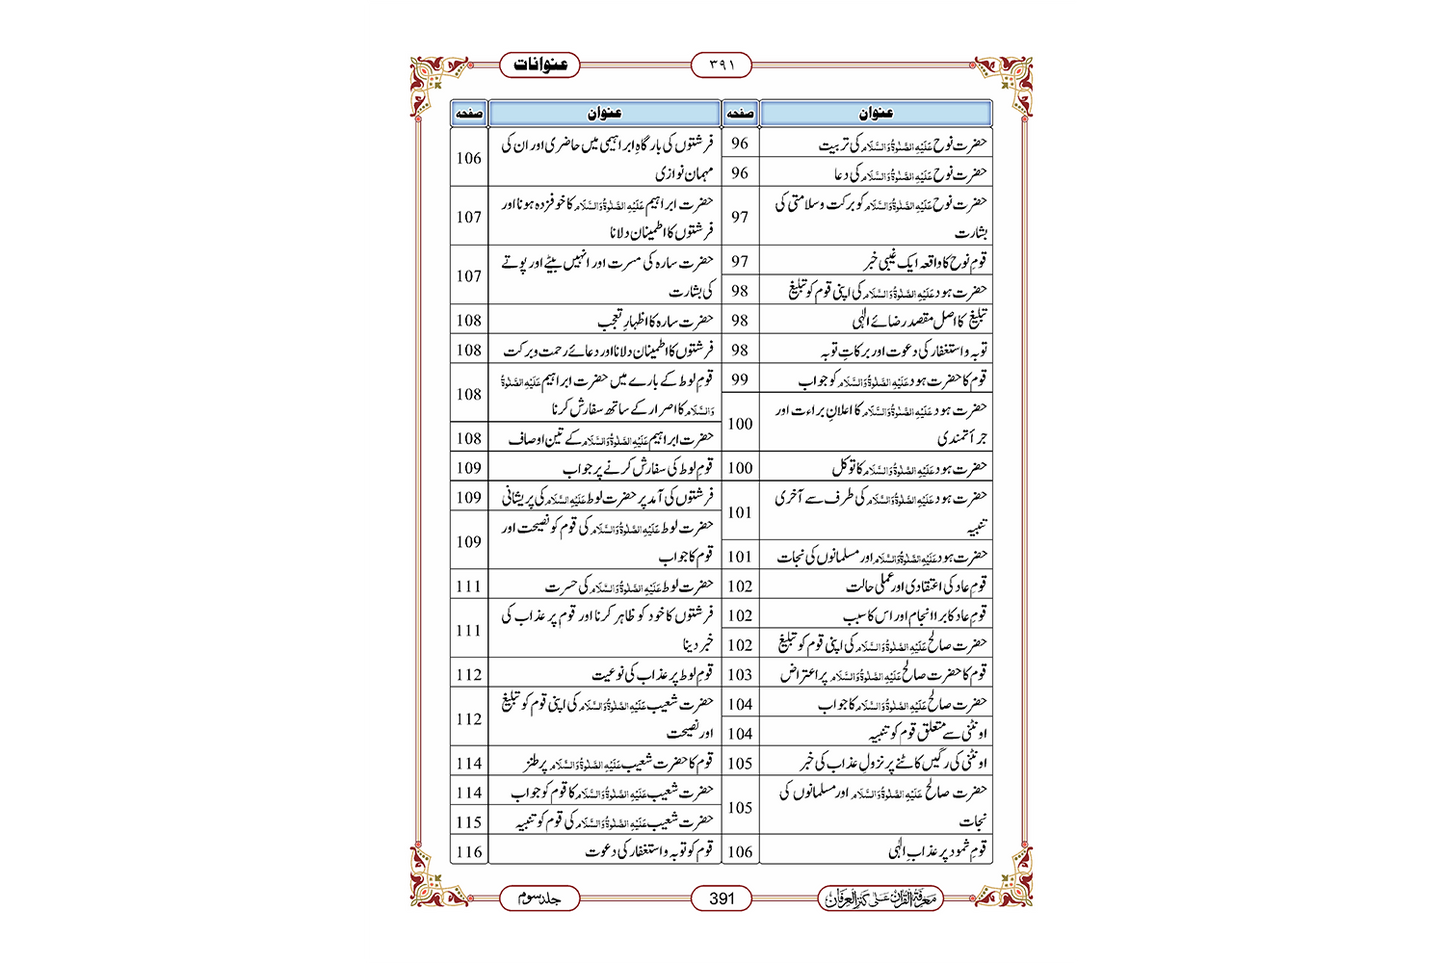 عنوانات
۳۹۱
عنوان
صفحہ
حضرت نوح عَلَیْہِ الصَّلٰوۃُ وَالسَّلَام کی تربیت
96
حضرت نوح عَلَیْہِ الصَّلٰوۃُ وَالسَّلَام کی دعا
96
حضرت نوح عَلَیْہِ الصَّلٰوۃُ وَالسَّلَام کو برکت وسلامتی کی
بشارت
97
قومِ نوح کا واقعہ ایک غیبی خبر
97
حضرت ہود عَلَیْہِ الصَّلٰوۃُ وَالسَّلَام کی اپنی قوم کو تبلیغ
98
تبلیغ کا اصل مقصد رضائے الٰہی
98
توبہ و استغفار کی دعوت اور برکاتِ توبہ
98
قوم کا حضرت ہود عَلَیْہِ الصَّلٰوۃُ وَالسَّلَام کو جواب
99
حضرت ہود عَلَیْہِ الصَّلٰوۃُ وَالسَّلَام کا اعلانِ براءت اور
جرأتمندی
100
حضرت ہود عَلَیْہِ الصَّلٰوۃُ وَالسَّلَام کا توکل
100
حضرت ہود عَلَیْہِ الصَّلٰوۃُ وَالسَّلَام کی طرف سے آخری
تنبیہ
101
حضرت ہود عَلَیْہِ الصَّلٰوۃُ وَالسَّلَام اور مسلمانوں کی نجات
101
قومِ عاد کی اعتقادی اور عملی حالت
102
قومِ عاد کا برا انجام اور اس کا سبب
102
حضرت صالح عَلَیْہِ الصَّلٰوۃُ وَالسَّلَام کی اپنی قوم کو تبلیغ
102
قوم کا حضرت صالح عَلَیْہِ الصَّلٰوۃُ وَالسَّلَام پر اعتراض
103
حضرت صالح عَلَیْہِ الصَّلٰوۃُ وَالسَّلَام کا جواب
104
اونٹنی سے متعلق قوم کو تنبیہ
104
اونٹنی کی رگیں کاٹنے پر نزولِ عذاب کی خبر
105
حضرت صالح عَلَیْہِ الصَّلٰوۃُ وَالسَّلَام اور مسلمانوں کی
نجات
105
قومِ ثمود پر عذابِ الٰہی
106
عنوان
صفحہ
فرشتوں کی بارگاہِ ابراہیمی میں حاضری اور ان کی
مہمان نوازی
106
حضرت ابراہیم عَلَیْہِ الصَّلٰوۃُ وَالسَّلَام کا خوفزدہ ہونا اور
فرشتوں کا اطمینان دلانا
107
حضرت سارہ کی مسرت اور انہیں بیٹے اور پوتے
کی بشارت
107
حضرت سارہ کا اظہارِ تعجب
108
فرشتوں کا اطمینان دلانا اور دعائے رحمت و برکت
108
قومِ لوط کے بارے میں حضرت ابراہیم عَلَیْہِ الصَّلٰوۃُ
وَالسَّلَام کا اصرار کے ساتھ سفارش کرنا
108
حضرت ابراہیم عَلَیْہِ الصَّلٰوۃُ وَالسَّلَام کے تین اوصاف
108
قومِ لوط کی سفارش کرنے پر جواب
109
فرشتوں کی آمد پر حضرت لوط عَلَیْہِ السَّلَام کی پریشانی
109
حضرت لوط عَلَیْہِ الصَّلٰوۃُ وَالسَّلَام کی قوم کو نصیحت اور
قوم کا جواب
109
حضرت لوط عَلَیْہِ الصَّلٰوۃُ وَالسَّلَام کی حسرت
111
فرشتوں کا خود کو ظاہر کرنا اور قوم پر عذاب کی
خبر دینا
111
قومِ لوط پر عذاب کی نوعیت
112
حضرت شعیب عَلَیْہِ الصَّلٰوۃُ وَالسَّلَام کی اپنی قوم کو تبلیغ
اور نصیحت
112
قوم کا حضرت شعیب عَلَیْہِ الصَّلٰوۃُ وَالسَّلَام پر طنز
114
حضرت شعیب عَلَیْہِ الصَّلٰوۃُ وَالسَّلَام کا قوم کو جواب
114
حضرت شعیب عَلَیْہِ الصَّلٰوۃُ وَالسَّلَام کی قوم کو تنبیہ
115
قوم کو توبہ و استغفار کی دعوت
116
مَعْرِفَۃُ الْقُرْاٰن عَلٰی کَنْزُ الْعِرْفَان
391
جلد سوم